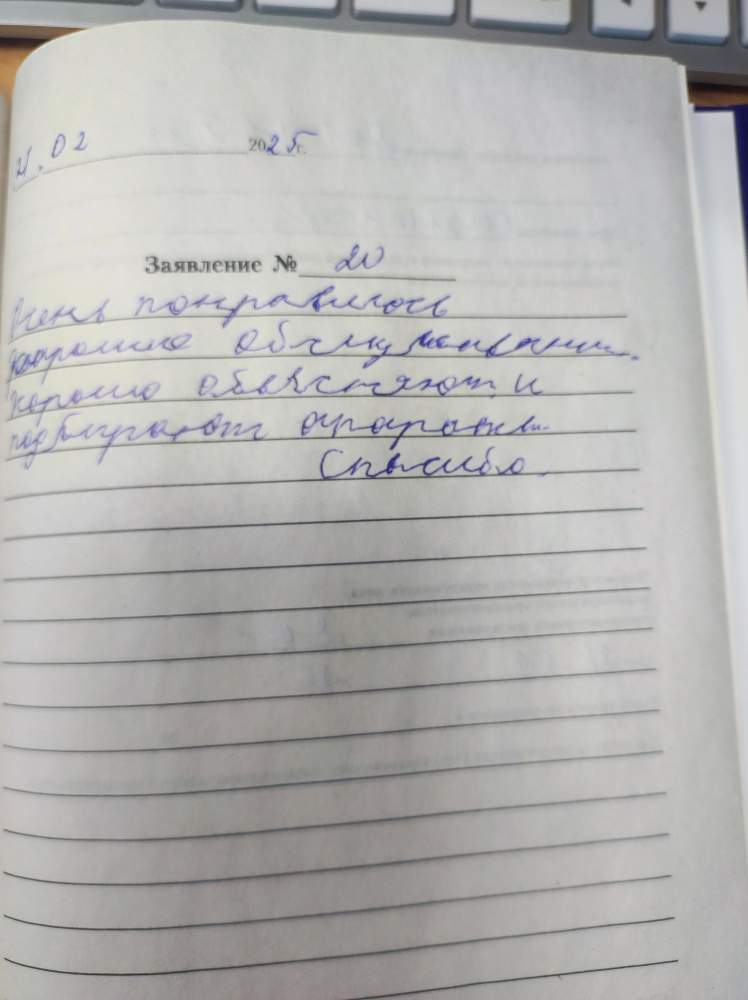 21.02 2025г.
Заявление № 20
Очень понравилось
хорошо обслуживании.
хорошо объясняют и
подбирают
Спасибо.